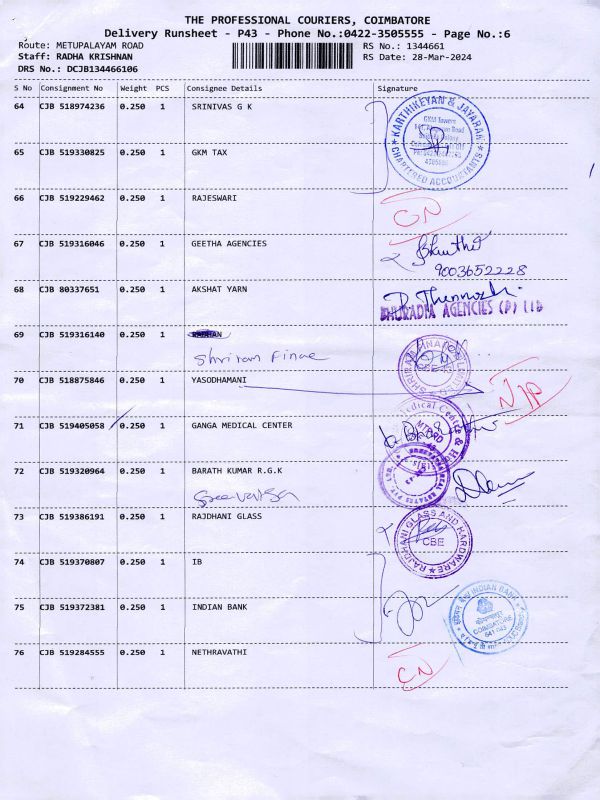 THE PROFESSIONAL COURIERS, COIMBATORE
Delivery Runsheet - P43 - Phone No.:0422-3505555 - Page No.:6
Route: METUPALAYAM ROAD RS No.: 1344661
Staff: RADHA KRISHNAN RS Date: 28-Mar-2024
DRS No.: DCJB134466106
S No Consignment No Weight PCS Consignee Details Signature
64 CJB 518974236 0.250 1 SRINIVAS G K
KARTHIKEYAN & JAYARAM
GKM Towers
CHARTERED ACCOUNTANTS
65 CJB 519330825 0.250 1 GKM TAX
66 CJB 519229462 0.250 1 RAJESWARI
CN
67 CJB 519316046 0.250 1 GEETHA AGENCIES
9003652228
68 CJB 80337651 0.250 1 AKSHAT YARN
AGENCIES (P) LTD
69 CJB 519316140 0.250 1
Shriram Finae
70 CJB 518875846 0.250 1 YASODHAMANI
71 CJB 519405058 0.250 1 GANGA MEDICAL CENTER
Medical Centre & H
72 CJB 519320964 0.250 1 BARATH KUMAR R.G.K
73 CJB 519386191 0.250 1 RAJDHANI GLASS
RAJDHANI GLASS AND HARDWARE
CBE
74 CJB 519370807 0.250 1 IB
75 CJB 519372381 0.250 1 INDIAN BANK
INDIAN BANK
COIMBATORE
641 043
76 CJB 519284555 0.250 1 NETHRAVATHI
CN